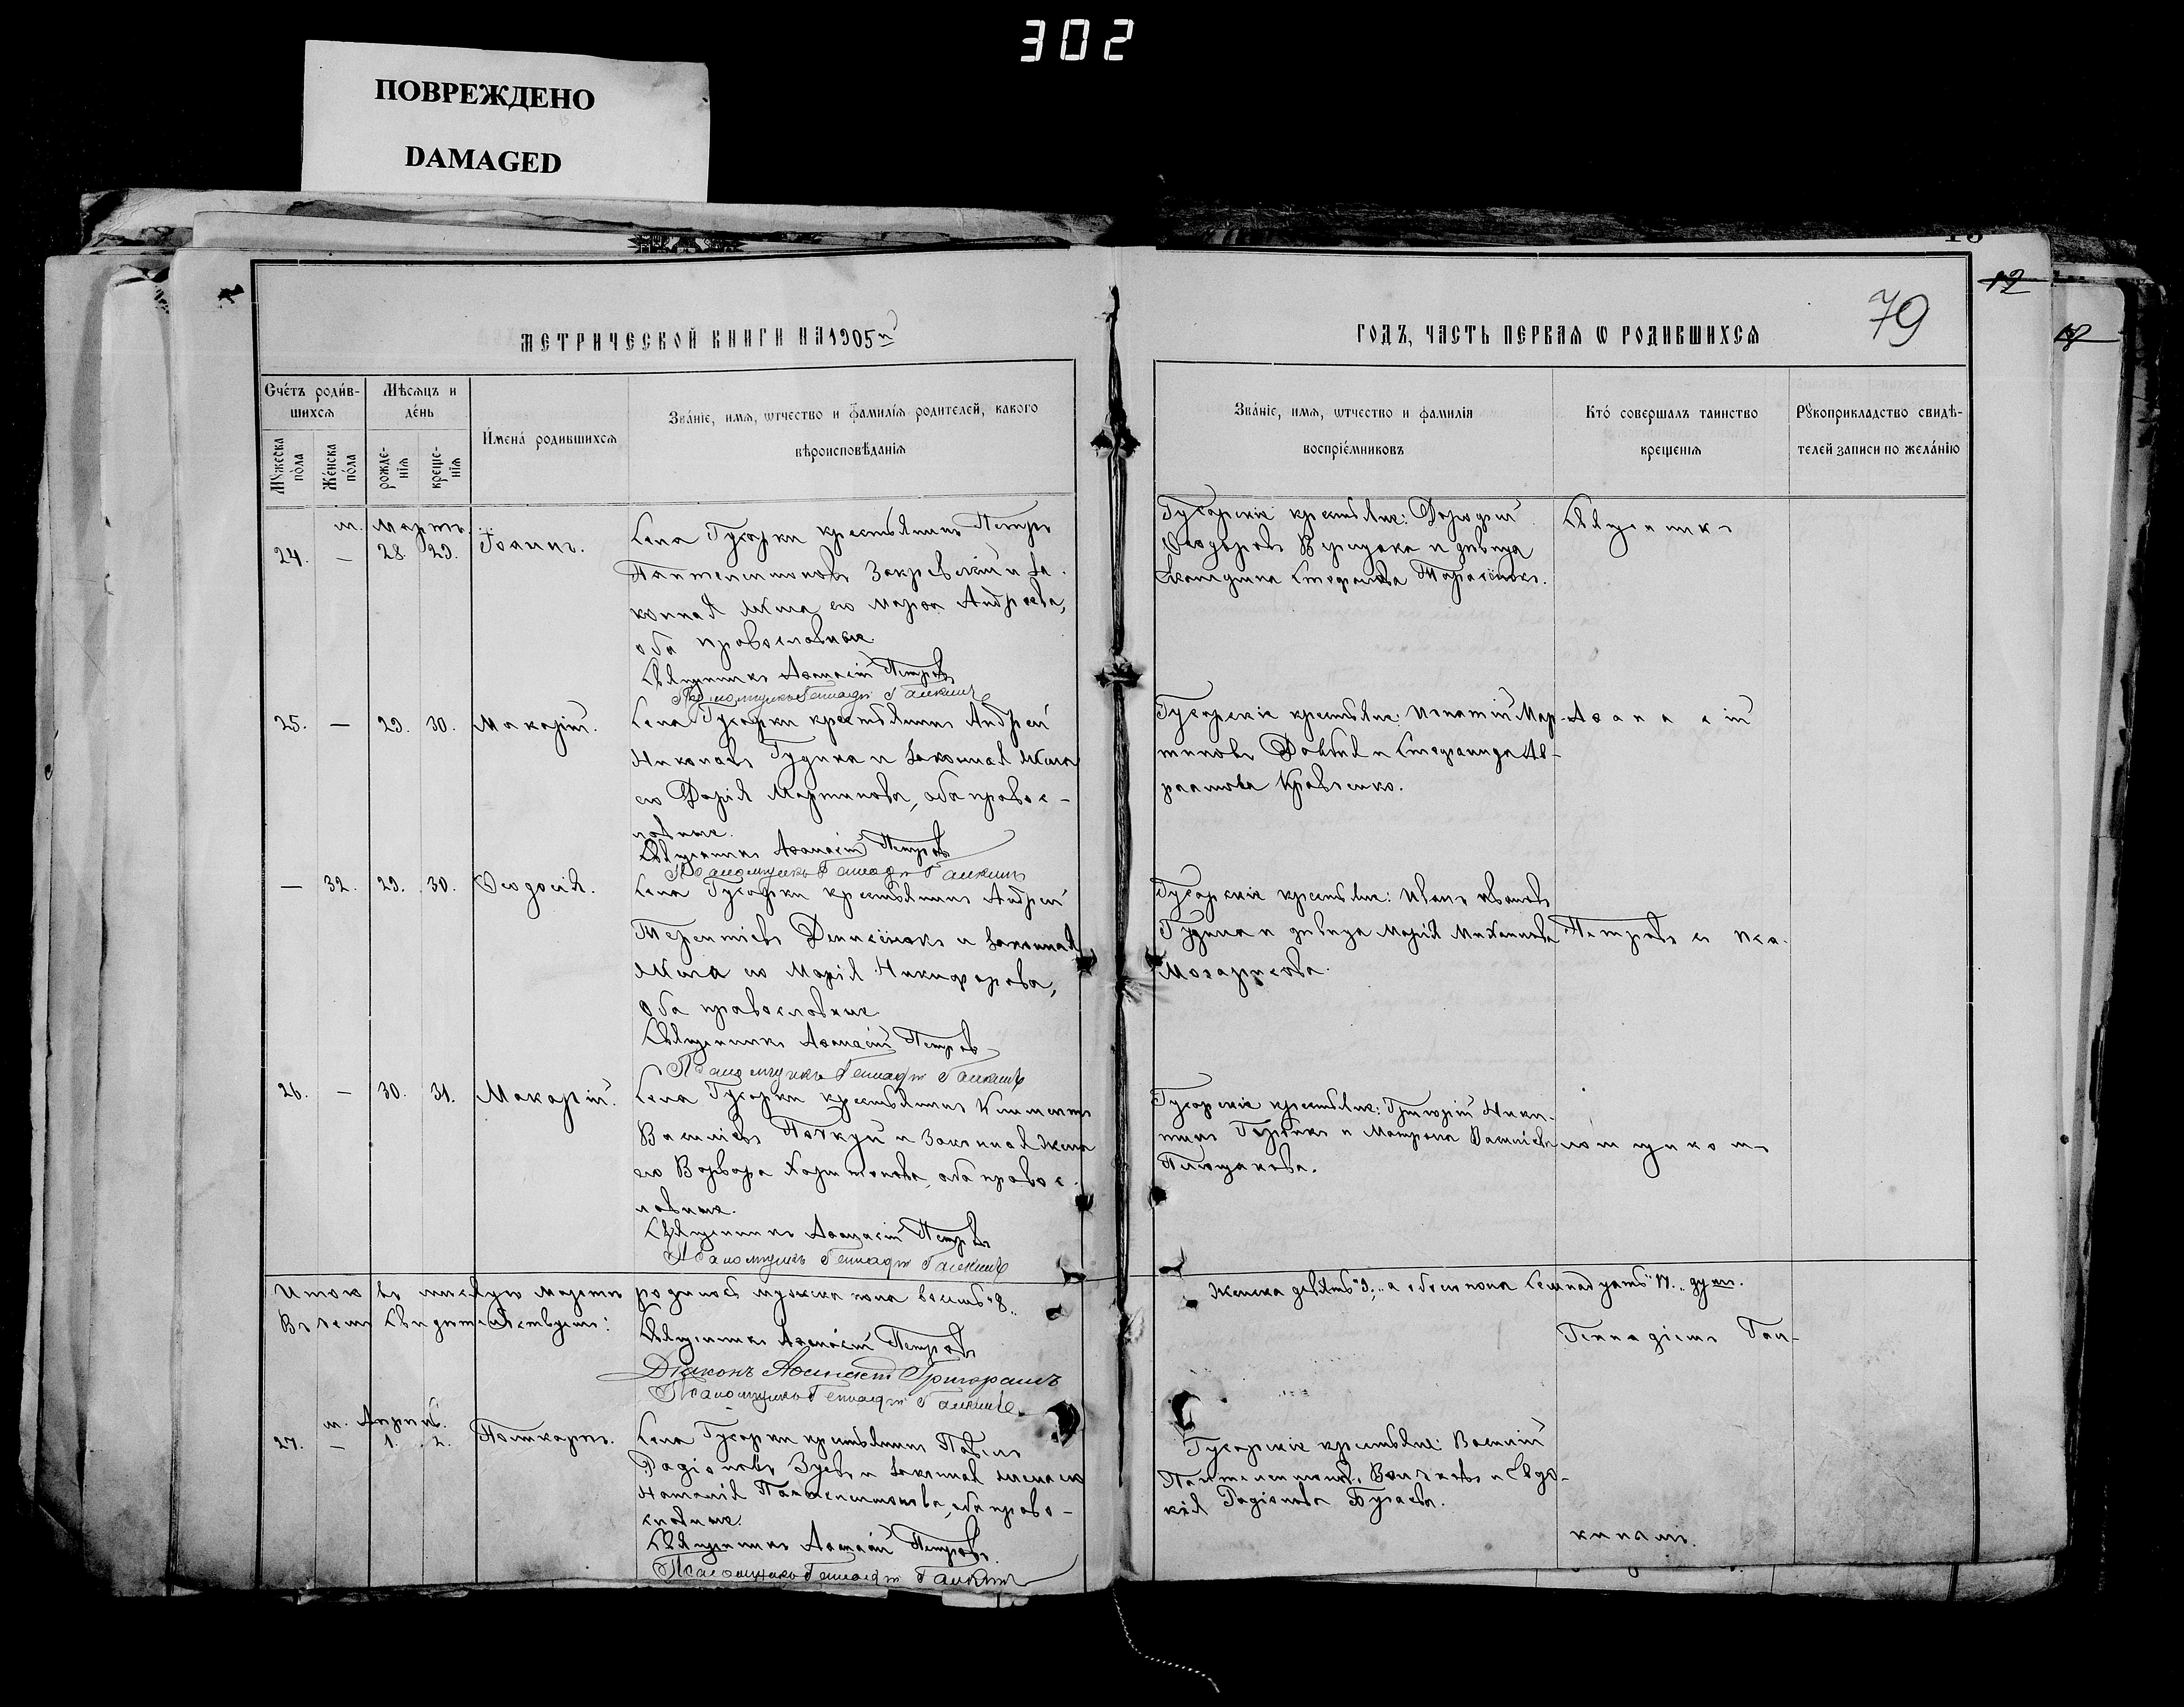 302
ПОВРЕЖДЕНО
DAMAGED
12
79
МЕТРИЧЕСКОЙ КНИГИ НА 1905й
ГОДЪ, ЧАСТЬ ПЕРВАЯ Ѡ РОДИВШИХСЯ
Счетъ родив-
шихся
Мужеска
пола
Женска
пола
Мѣсяцъ и
день
рожде-
нія
креще-
нія
Имена родившихся
Званіе, имя, ѡтчество и фамилія родителей, какого
вѣроисповѣданія
Званіе, имя, ѡтчество и фамилія
воспріемниковъ
Кто совершалъ таинство
крещенія
Рукоприкладство свидѣ-
телей записи по желанію
м. Мартъ
24. — 28. 29. Іоаннъ.
Села Гусарки крестьянинъ Петръ
Пантелеимоновъ Закревскій и за-
конная жена его Марѳа Андреева,
оба православные.
Священникъ Аѳанасій Петровъ
Псаломщикъ Геннадій Галкинъ
Гусарскіе крестьяне: Дороѳей
Ѳеодоровъ и дѣвица
Стефанова Тарасенко.
Священникъ
25. — 29. 30. Макарій.
Села Гусарки крестьянинъ Андрей
Гудина и законная жена
его Дарія Мартинова, оба правос-
лавные.
Священникъ Аѳанасій Петровъ
Псаломщикъ Геннадій Галкинъ
Гусарскіе крестьяне: Игнатій Мар-
тиновъ Довбня и Стефанида Ав-
раамова Кравченко.
Аѳанасій
— 32. 29. 30. Ѳеодосія.
Села Гусарки крестьянинъ Андрей
Терентіевъ Денисенко и законная
жена его Марія Никифорова,
оба православные.
Священникъ Аѳанасій Петровъ
Псаломщикъ Геннадій Галкинъ
Гусарскіе крестьяне: Иванъ Ивановъ
Гудина и дѣвица Марія Михаилова
Петровъ съ пса-
26. — 30. 31. Макарій.
Села Гусарки крестьянинъ Климентъ
Василіевъ и законная жена
его Варвара Харитонова, оба правос-
лавные.
Священникъ Аѳанасій Петровъ
Псаломщикъ Геннадій Галкинъ
Гусарскіе крестьяне: Григорій Ники-
тинъ и Матрона Василіева
ломщикомъ
Итого въ мѣсяцѣ мартѣ родилось мужска пола восемь "8"
женска девять "9", а обоего пола семнадцать "17" душъ.
Въ семъ свидѣтельствуемъ:
Священникъ Аѳанасій Петровъ
Діаконъ Аѳанасій
Псаломщикъ Геннадій Галкинъ
Геннадіемъ Гал-
м. Апрѣль.
27. — 1. 2. Поликарпъ.
Села Гусарки крестьянинъ Павелъ
Радіоновъ Зуевъ и законная жена его
Наталія Пантелеимонова, оба право-
славные.
Священникъ Аѳанасій Петровъ
Псаломщикъ Геннадій Галкинъ
Гусарскіе крестьяне: Василій
Пантелеимоновъ Волчковъ и Евдо-
кія Радіонова Бугаева.
кинымъ.